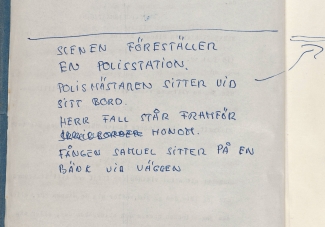 SCENEN FÖRESTÄLLER
EN POLISSTATION.
POLISMÄSTAREN SITTER VID
SITT BORD.
HERR FALL STÅR FRAMFÖR
HONOM.
FÅNGEN SAMUEL SITTER PÅ EN
BÄNK VID VÄGGEN